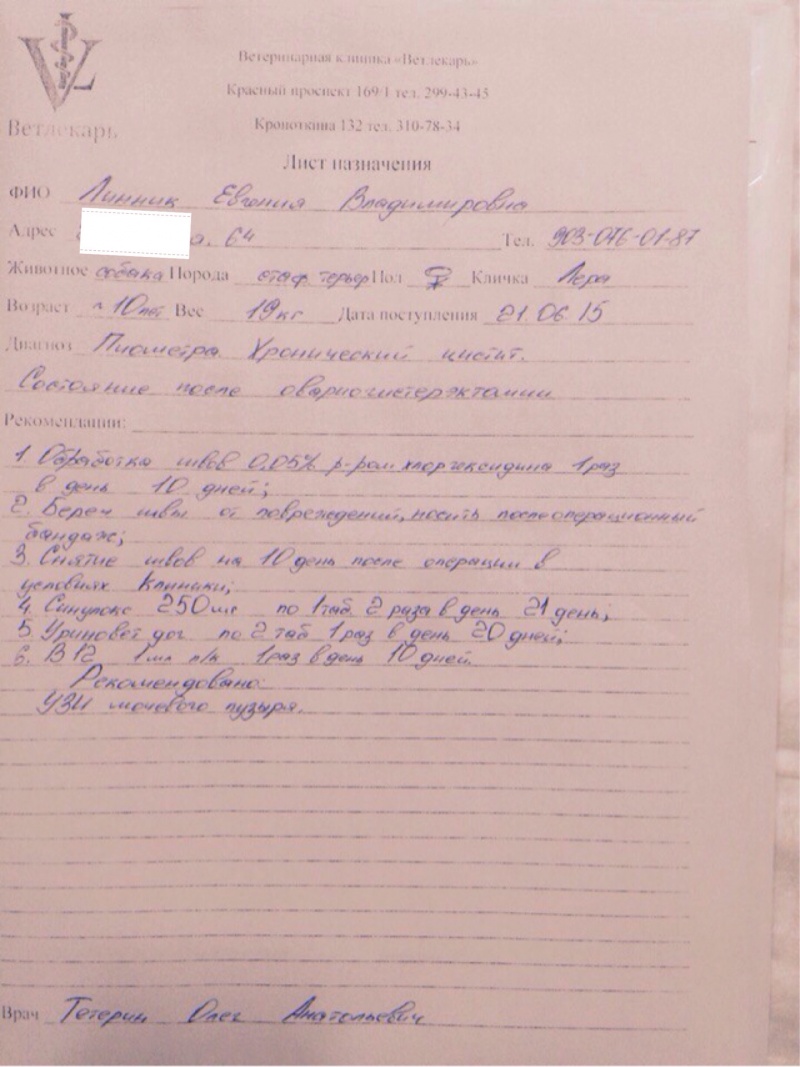 Ветлекарь
Ветеринарная клиника «Ветлекарь»
Красный проспект 169/1 тел. 299-43-43
Кропоткина 132 тел. 310-78-34
Лист назначения
ФИО Линник Евгения Владимировна
Адрес а. 64 Тел. 903-076-01-87
Животное собака Порода стаф. терьер Пол ♀ Кличка Лера
Возраст ~ 10 лет Вес 19 кг Дата поступления 21.06.15
Диагноз Пиометра. Хронический цистит.
Состояние после овариогистерэктомии
Рекомендации:
1. Обработка швов 0,05% р-ром хлоргексидина 1 раз
в день 10 дней;
2. Беречь швы от повреждений, носить послеоперационный
бандаж;
3. Снятие швов на 10 день после операции в
условиях клиники;
4. Синулокс 250 мг по 1 таб 2 раза в день 21 день;
5. Уриновет дог по 2 таб 1 раз в день 20 дней;
6. В12 1 мл п/к 1 раз в день 10 дней.
Рекомендовано:
УЗИ мочевого пузыря.
Врач Тетерин Олег Анатольевич